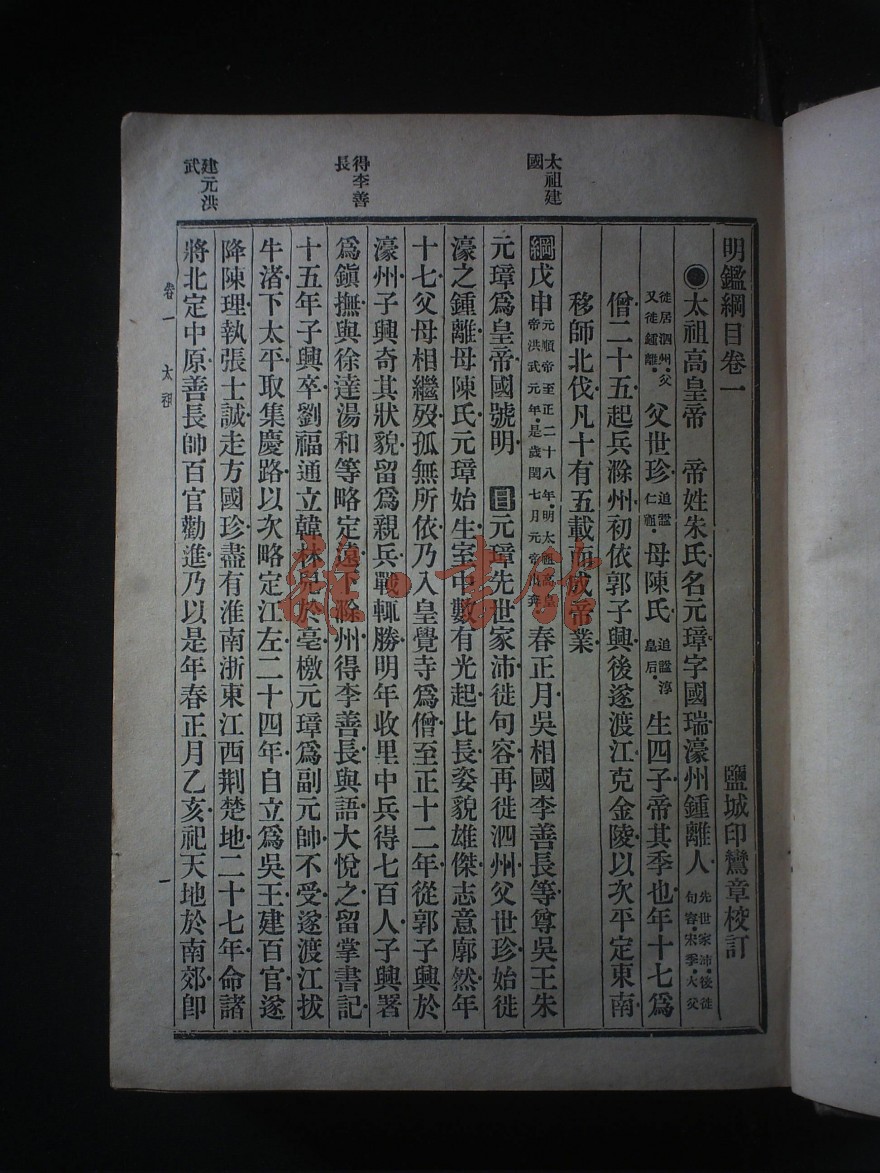 太祖建
國
得李善
長
建元洪
武
明鑑綱目卷一 鹽城印鸞章校訂
●太祖高皇帝 帝姓朱氏名元璋字國瑞濠州鍾離人先世家沛後徙句容宋季大父
徙居泗州父又徙鍾離父世珍追諡仁祖母陳氏追諡淳皇后生四子帝其季也年十七爲
僧二十五起兵滁州初依郭子興後遂渡江克金陵以次平定東南
移師北伐凡十有五載而成帝業
綱戊申元順帝至正二十八年明太祖高皇帝洪武元年是歲閏七月元帝北奔春正月吳相國李善長等尊吳王朱
元璋爲皇帝國號明 目元璋先世家沛徙句容再徙泗州父世珍始徙
濠之鍾離母陳氏元璋始生室中數有光起比長姿貌雄傑志意廓然年
十七父母相繼歿孤無所依乃入皇覺寺爲僧至正十二年從郭子興於
濠州子興奇其狀貌留爲親兵戰輒勝明年收里中兵得七百人子興署
爲鎭撫與徐達湯和等略定遠下滁州得李善長與語大悅之留掌書記
十五年子興卒劉福通立韓林兒於亳檄元璋爲副元帥不受遂渡江拔
牛渚下太平取集慶路以次略定江左二十四年自立爲吳王建百官遂
降陳理執張士誠走方國珍盡有淮南浙東江西荆楚地二十七年命諸
將北定中原善長帥百官勸進乃以是年春正月乙亥祀天地於南郊卽
卷一 太祖 一